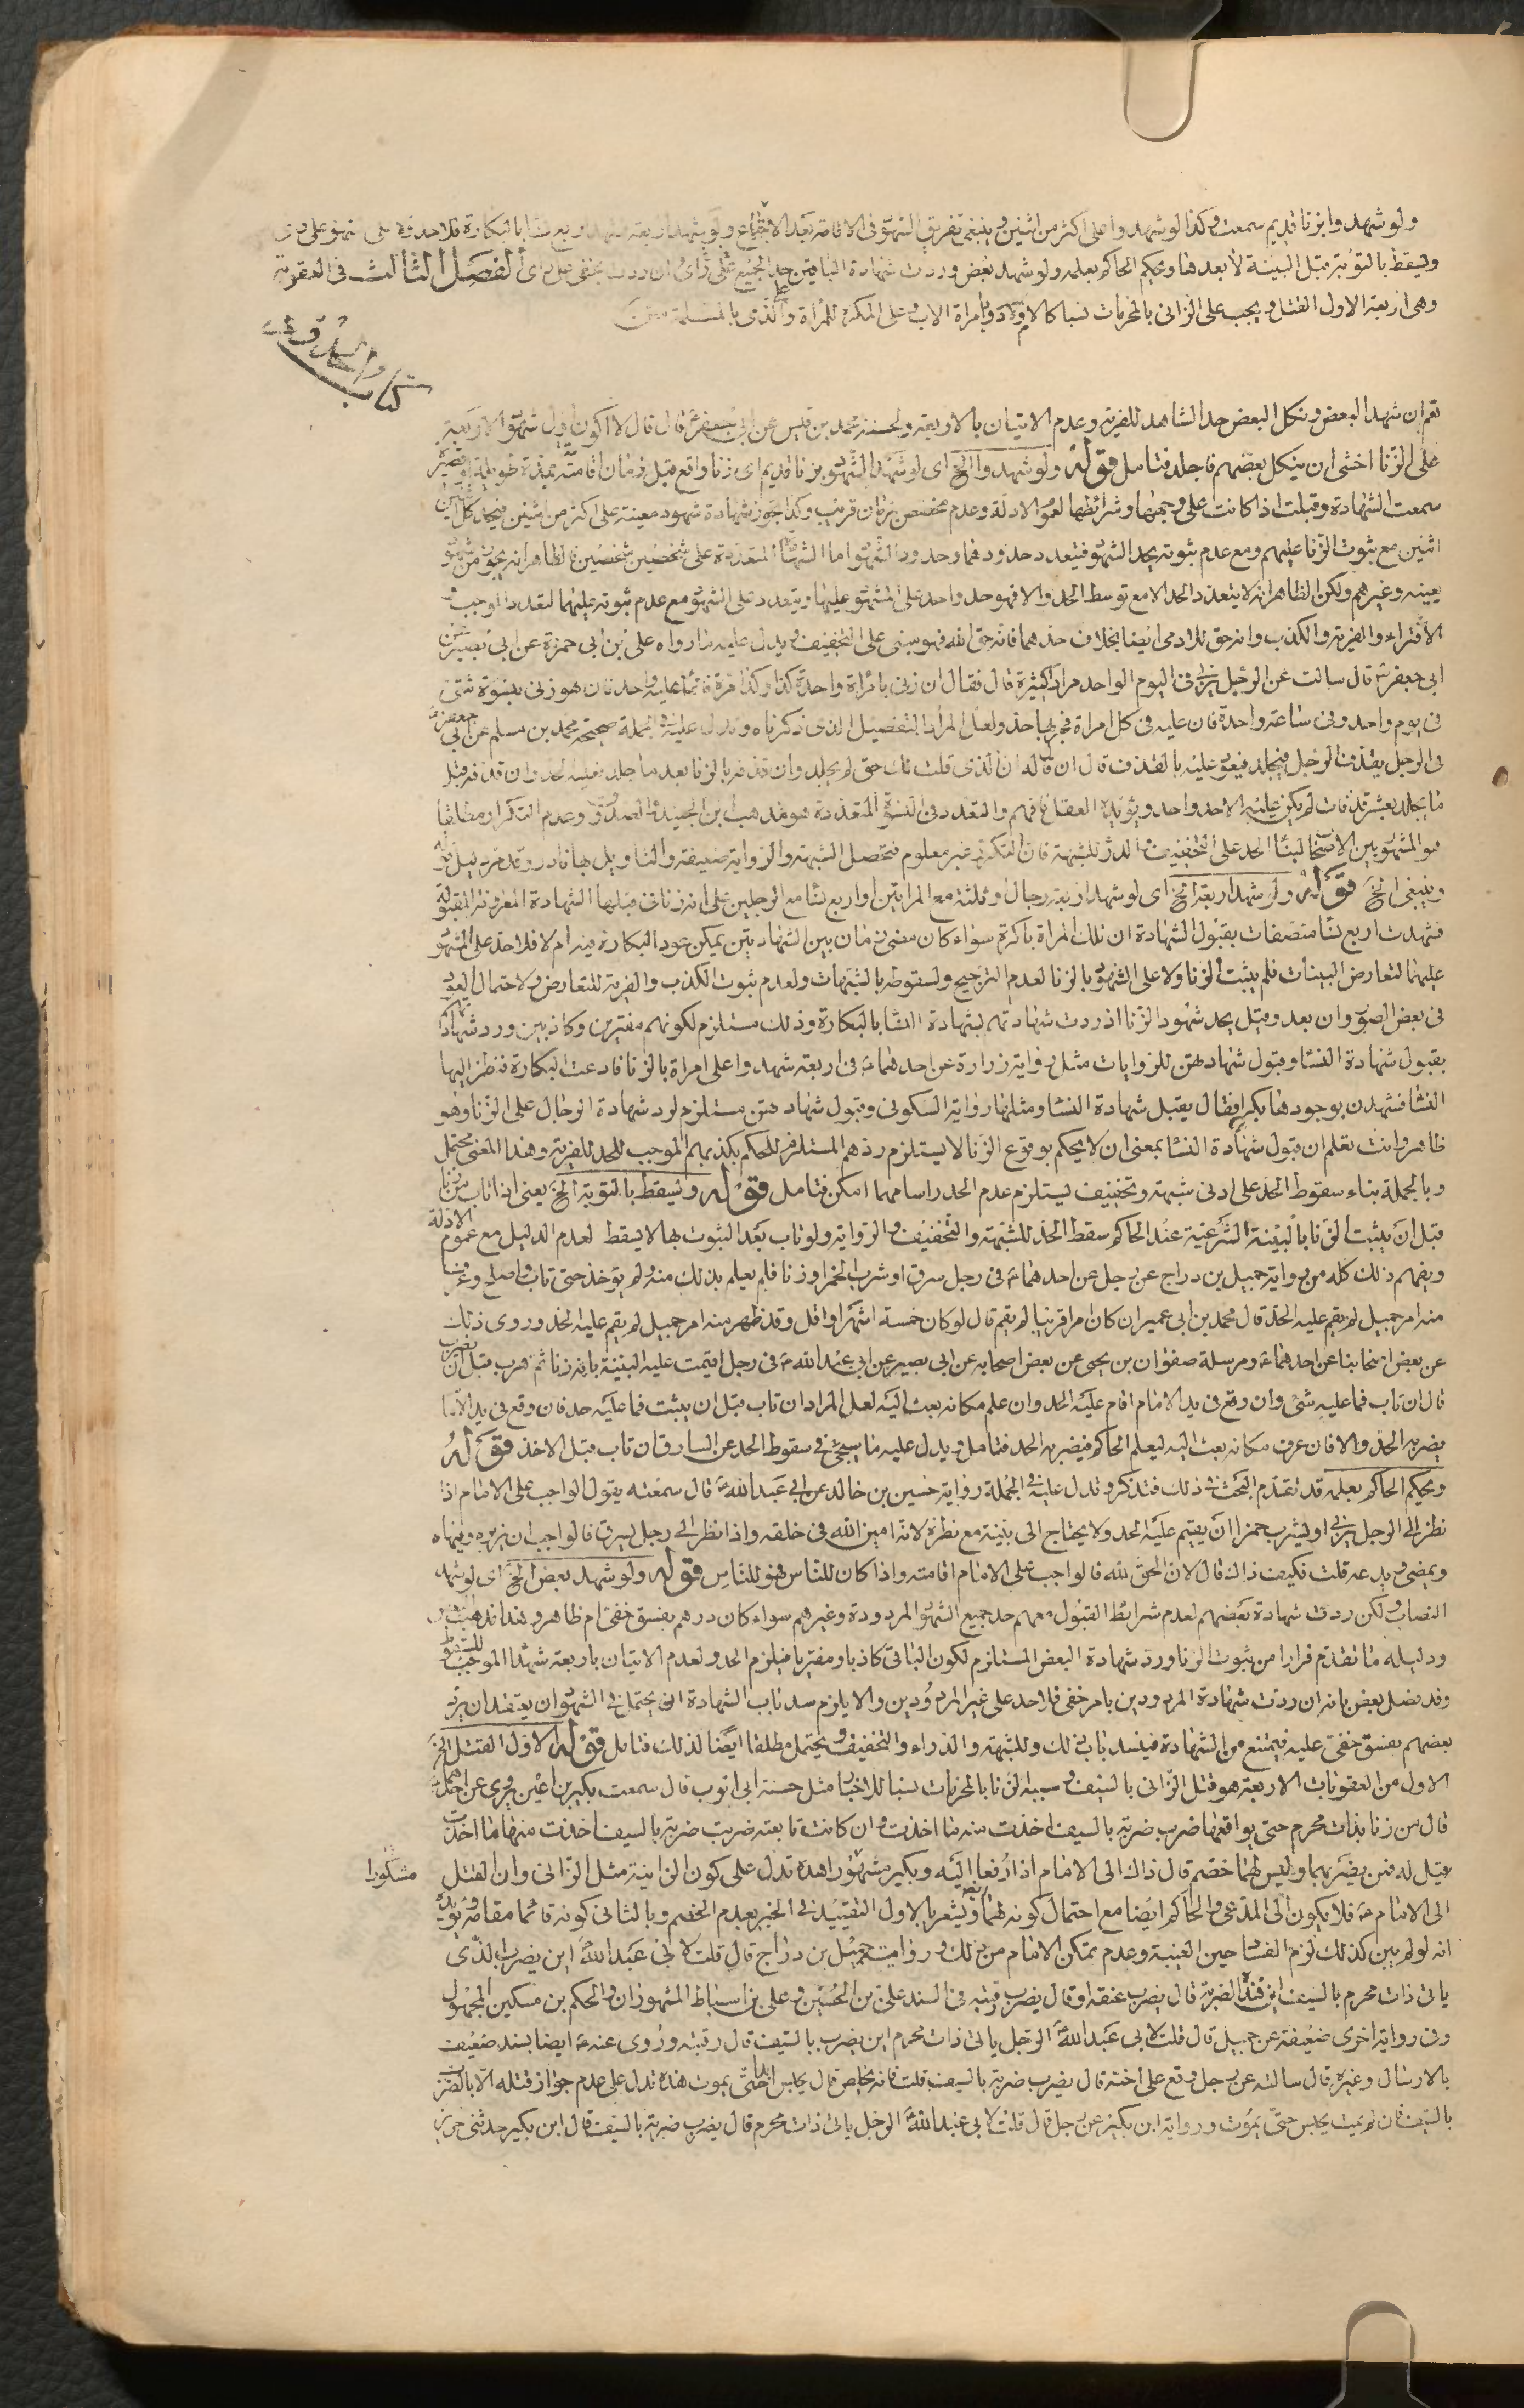 ولو شهدوا بزنا قديم سمعت وكذا لو شهدوا على اكثر من اثنين وينبغى تفريق الشهود فى الاقامة بعد الاجتماع ولو شهد اربعة فشهد اربع نسا بالبكارة فلا حد
ويسقط بالتوبة قبل البينة لا بعدها ويحكم الحاكم بعلمه ولو شهد بعض وردت شهادة الباقين حد الجميع على راى وان ردت بخفى على راى الفصل الثالث فى العقوبة
وهى اربعة الاول القتل ويجب على الزانى بالمحرمات نسبا كالام وبامراة الاب وعلى المكره للمراة والذمى بالمسلمة
كتاب الحدود
نعم ان شهد البعض ونكل البعض حد الشاهد للفرية وعدم الاتيان بالاربعة ولحسنة محمد بن قيس عن ابى جعفر ع قال قال لا اكون اول شهود الاربعة
على الزنا اخشى ان ينكل بعضهم فاجلد فتامل قوله ولو شهدوا الخ اى لو شهد الشهود بزنا قديم اى زنا واقع قبل زمان اقامته بمدة طويلة او قصيرة
سمعت الشهادة وقبلت اذا كانت على وجهها وشرائطها لعموم الادلة وعدم مخصص بزمان قريب وكذا يجوز شهادة شهود معينة على اكثر من اثنين فيحد كل اثنين
اثنين مع ثبوت الزنا عليهم ومع عدم ثبوته يحد الشهود فيتعدد حدودهما وحدود الشهود اما الشهادة المتعددة على شخصين شخصين فالظاهر انه يجوز من شهود
بعينه وغيرهم ولكن الظاهر انه لا يتعدد الحد الا مع توسط الحد والا فهو حد واحد على المشهود عليها ويتعدد على الشهود مع عدم ثبوته عليهما لتعدد الموجب
الافتراء والفرية والكذب وانه حق للادمى ايضا بخلاف حدهما فانه حق الله فهو مبنى على التخفيف ويدل عليه ما رواه على بن ابى حمزة عن ابى بصير عن
ابى جعفر ع قال سالت عن الرجل يزنى فى اليوم الواحد مرارا كثيرة قال فقال ان زنى بامراة واحدة كذا وكذا مرة فانما عليه حد واحد فان هو زنى بنسوة شتى
فى يوم واحد وفى ساعة واحدة فان عليه فى كل امراة فجر بها حد ولعل المراد التفصيل الذى ذكرناه وتدل عليه فى الجملة صحيحة محمد بن مسلم عن ابى جعفر ع
فى الرجل يقذف الرجل فيجلد فيعود عليه بالقذف قال ان قال له ان الذى قلت لك حق لم يجلد وان قذفه بالزنا بعد ما جلد فعليه الحد وان قذفه قبل
ما يجلد بعشر قذفات لم يكن عليه الا حد واحد ويؤيده العقل فافهم والتعدد فى النسوة المتعددة هو مذهب ابن الجنيد والصدوق وعدم التكرار مطلقا
هو المشهور بين الاصحاب لبناء الحد على التخفيف والدرء للشبهة فان التكرر غير معلوم فتحصل الشبهة والرواية ضعيفة والتاويل بها نادر وقد مر دليل قوله
وينبغى الخ قوله ولو شهد اربعة الخ اى لو شهد اربعة رجال وثلثة مع المراتين او اربع نسا مع الرجلين على انه زنا فى قبلها الشهادة المعروفة المقبولة
فشهدت اربع نسا متصفات بقبول الشهادة ان تلك المراة باكرة سواء كان مضى زمان بين الشهادتين يمكن عود البكارة فيه ام لا فلا حد على المشهود
عليهما لتعارض البينات فلم يثبت الزنا ولا على الشهود بالزنا لعدم الترجيح ولسقوطه بالشبهات ولعدم ثبوت الكذب والفرية للتعارض ولاحتمال العود
فى بعض الصور وان بعد وقيل يحد شهود الزنا اذ ردت شهادتهم لشهادة النسا بالبكارة وذلك مستلزم لكونهم مفترين وكاذبين ورد شهادتهم
بقبول شهادة النسا وقبول شهادتهن للروايات مثل رواية زرارة عن احدهما ع فى اربعة شهدوا على امراة بالزنا فادعت البكارة فنظر اليها
النسا فشهدن بوجودها بكرا فقال يقبل شهادة النسا ومثلها رواية السكونى وقبول شهادتهن مستلزم لرد شهادة الرجال على الزنا وهو
ظاهر وانت تعلم ان قبول شهادة النسا بمعنى ان لا يحكم بوقوع الزنا لا يستلزم ردهم المستلزم للحكم بكذبهم الموجب للحد للفرية وهذا المعنى محتمل
وبالجملة بناء سقوط الحد على ادنى شبهة وتخفيف يستلزم عدم الحد راسا مهما امكن فتامل قوله ويسقط بالتوبة الخ يعنى اذا تاب من زنا
قبل ان يثبت الزنا بالبينة الشرعية عند الحاكم سقط الحد للشبهة والتخفيف والرواية ولو تاب بعد الثبوت بها لا يسقط لعدم الدليل مع عموم الادلة
ويفهم ذلك كله من رواية جميل بن دراج عن رجل عن احدهما ع فى رجل سرق او شرب الخمر او زنا فلم يعلم بذلك منه ولم يؤخذ حتى تاب واصلح وعرف
منه امر جميل لم يقم عليه الحد قال محمد بن ابى عمير ان كان امرا قريبا لم يقم قال لو كان خمسة اشهر او اقل وقد ظهر منه امر جميل لم يقم عليه الحد وروى ذلك
عن بعض اصحابنا عن احدهما ع ومرسلة صفوان بن يحيى عن بعض اصحابه عن ابى بصير عن ابى عبد الله ع فى رجل اقيمت عليه البينة بانه زنا ثم هرب قبل ان يضرب
قال ان تاب فما عليه شئ وان وقع فى يد الامام اقام عليه الحد وان علم مكانه بعث اليه لعل المراد ان تاب قبل ان يثبت فما عليه حد فان وقع فى يد الامام
يضربه الحد والا فان عرف مكانه بعث اليه ليعلم الحاكم فيضربه الحد فتامل ويدل عليه ما سيجئ فى سقوط الحد عن السارق ان تاب قبل الاخذ قوله
ويحكم الحاكم بعلمه قد تقدم البحث فى ذلك فتذكر وتدل عليه فى الجملة رواية حسين بن خالد عن ابى عبد الله ع قال سمعته يقول الواجب على الامام اذا
نظر الى الرجل يزنى او يشرب خمرا ان يقيم عليه الحد ولا يحتاج الى بينة مع نظره لانه امين الله فى خلقه واذا نظر الى رجل يسرق فالواجب ان يزبره وينهاه
ويمضى ويدعه قلت فكيف ذاك قال لان الحق لله فالواجب على الامام اقامته واذا كان للناس فهو للناس قوله ولو شهد بعض الخ اى لو شهد
النصاب لكن ردت شهادة بعضهم لعدم شرائط القبول معهم حد جميع الشهود المردودة وغيرهم سواء كان ردهم بفسق خفى ام ظاهر وهذا مذهب
ودليله ما تقدم فرارا من ثبوت الزنا ورد شهادة البعض المستلزم لكون الباقى كاذبا ومفتريا فيلزم الحد ولعدم الاتيان باربعة شهدا الموجب للسقوط
وقد فصل بعض بانه ان ردت شهادة المردودين بامر خفى فلا حد على غير المردودين والا يلزم سد باب الشهادة اذ يحتمل فى الشهود ان يعتقد ان يرد
بعضهم بفسق خفى عليه فيمتنع من الشهادة فينسد باب ذلك وللشبهة والدراء والتخفيف ويحتمل مطلقا ايضا لذلك فتامل قوله الاول القتل الخ
الاول من العقوبات الاربعة هو قتل الزانى بالسيف وسببه الزنا بالمحرمات نسبا للاخبار مثل حسنة ابى ايوب قال سمعت بكير بن اعين يروى عن احدهما ع
قال من زنا بذات محرم حتى يواقعها ضرب ضربة بالسيف اخذت منه ما اخذت وان كانت تابعته ضربت ضربة بالسيف اخذت منها ما اخذت
قيل له فمن يضربهما وليس لهما خصم قال ذاك الى الامام اذا رفعا اليه وبكير مشهور هذه تدل على كون الزانية مثل الزانى وان القتل
مشكورا
الى الامام ع فلا يكون الى المدعى والحاكم ايضا مع احتمال كونه لهما ويشعر بالاول التقييد فى الخبر بعدم الخصم وبالثانى كونه قائما مقامه ويؤيده
انه لو لم يبن كذلك لزم الفسا حين الغيبة وعدم تمكن الامام من ذلك ورواية جميل بن دراج قال قلت لابى عبد الله ع اين يضرب الذى
ياتى ذات محرم بالسيف اين هذه الضربة قال يضرب عنقه او قال يضرب رقبته فى السند على بن الحسين وعلى بن اسباط المشهوران والحكم بن مسكين المجهول
وفى رواية اخرى ضعيفة عن جميل قال قلت لابى عبد الله ع الرجل ياتى ذات محرم اين يضرب بالسيف قال رقبته وروى عنه ع ايضا بسند ضعيف
بالارسال وغيره قال سالته عن رجل وقع على اخته قال يضرب ضربة بالسيف قلت فانه يخلص قال يحبس ابدا حتى يموت هذه تدل على عدم جواز قتله الا بالضرب
بالسيف فان لم يمت يحبس حتى يموت ورواية ابن بكير عن رجل قال قلت لابى عبد الله ع الرجل ياتى ذات محرم قال يضرب ضربة بالسيف قال ابن بكير حدثنى حريز